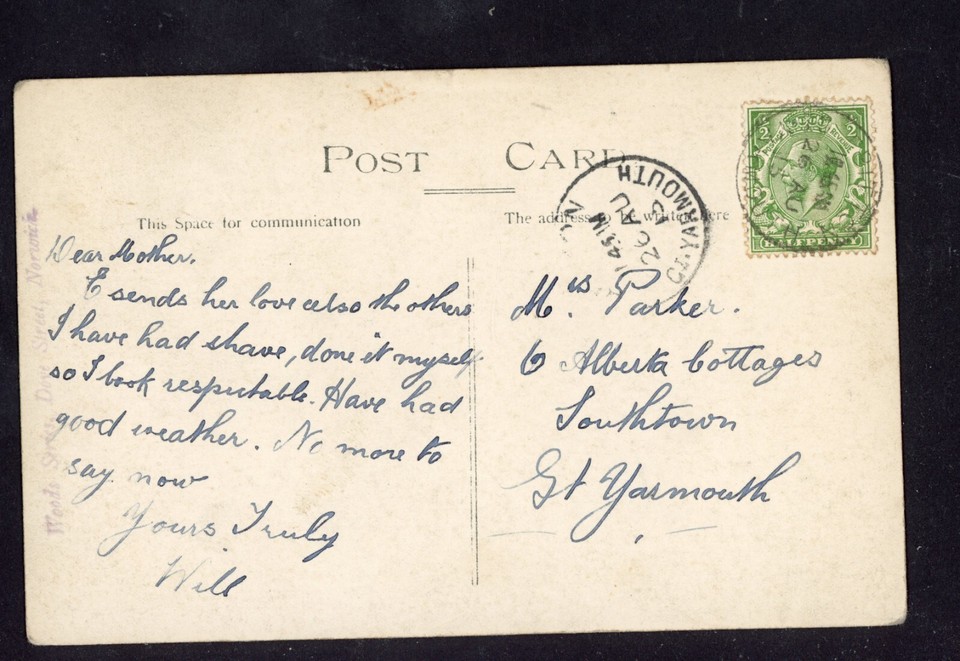 POST CARD
This Space for communication
The address to be written here
Dear Mother.
E sends her love also the others
I have had shave, done it myself
so I look respectable. Have had
good weather. No more to
say now
Yours Truly
Will
Mrs. Parker.
6 Alberta Cottages
Southtown
Gt Yarmouth
GT. YARMOUTH
26 AU
15
HALFPENNY
26 AU
15
Woods Norwich